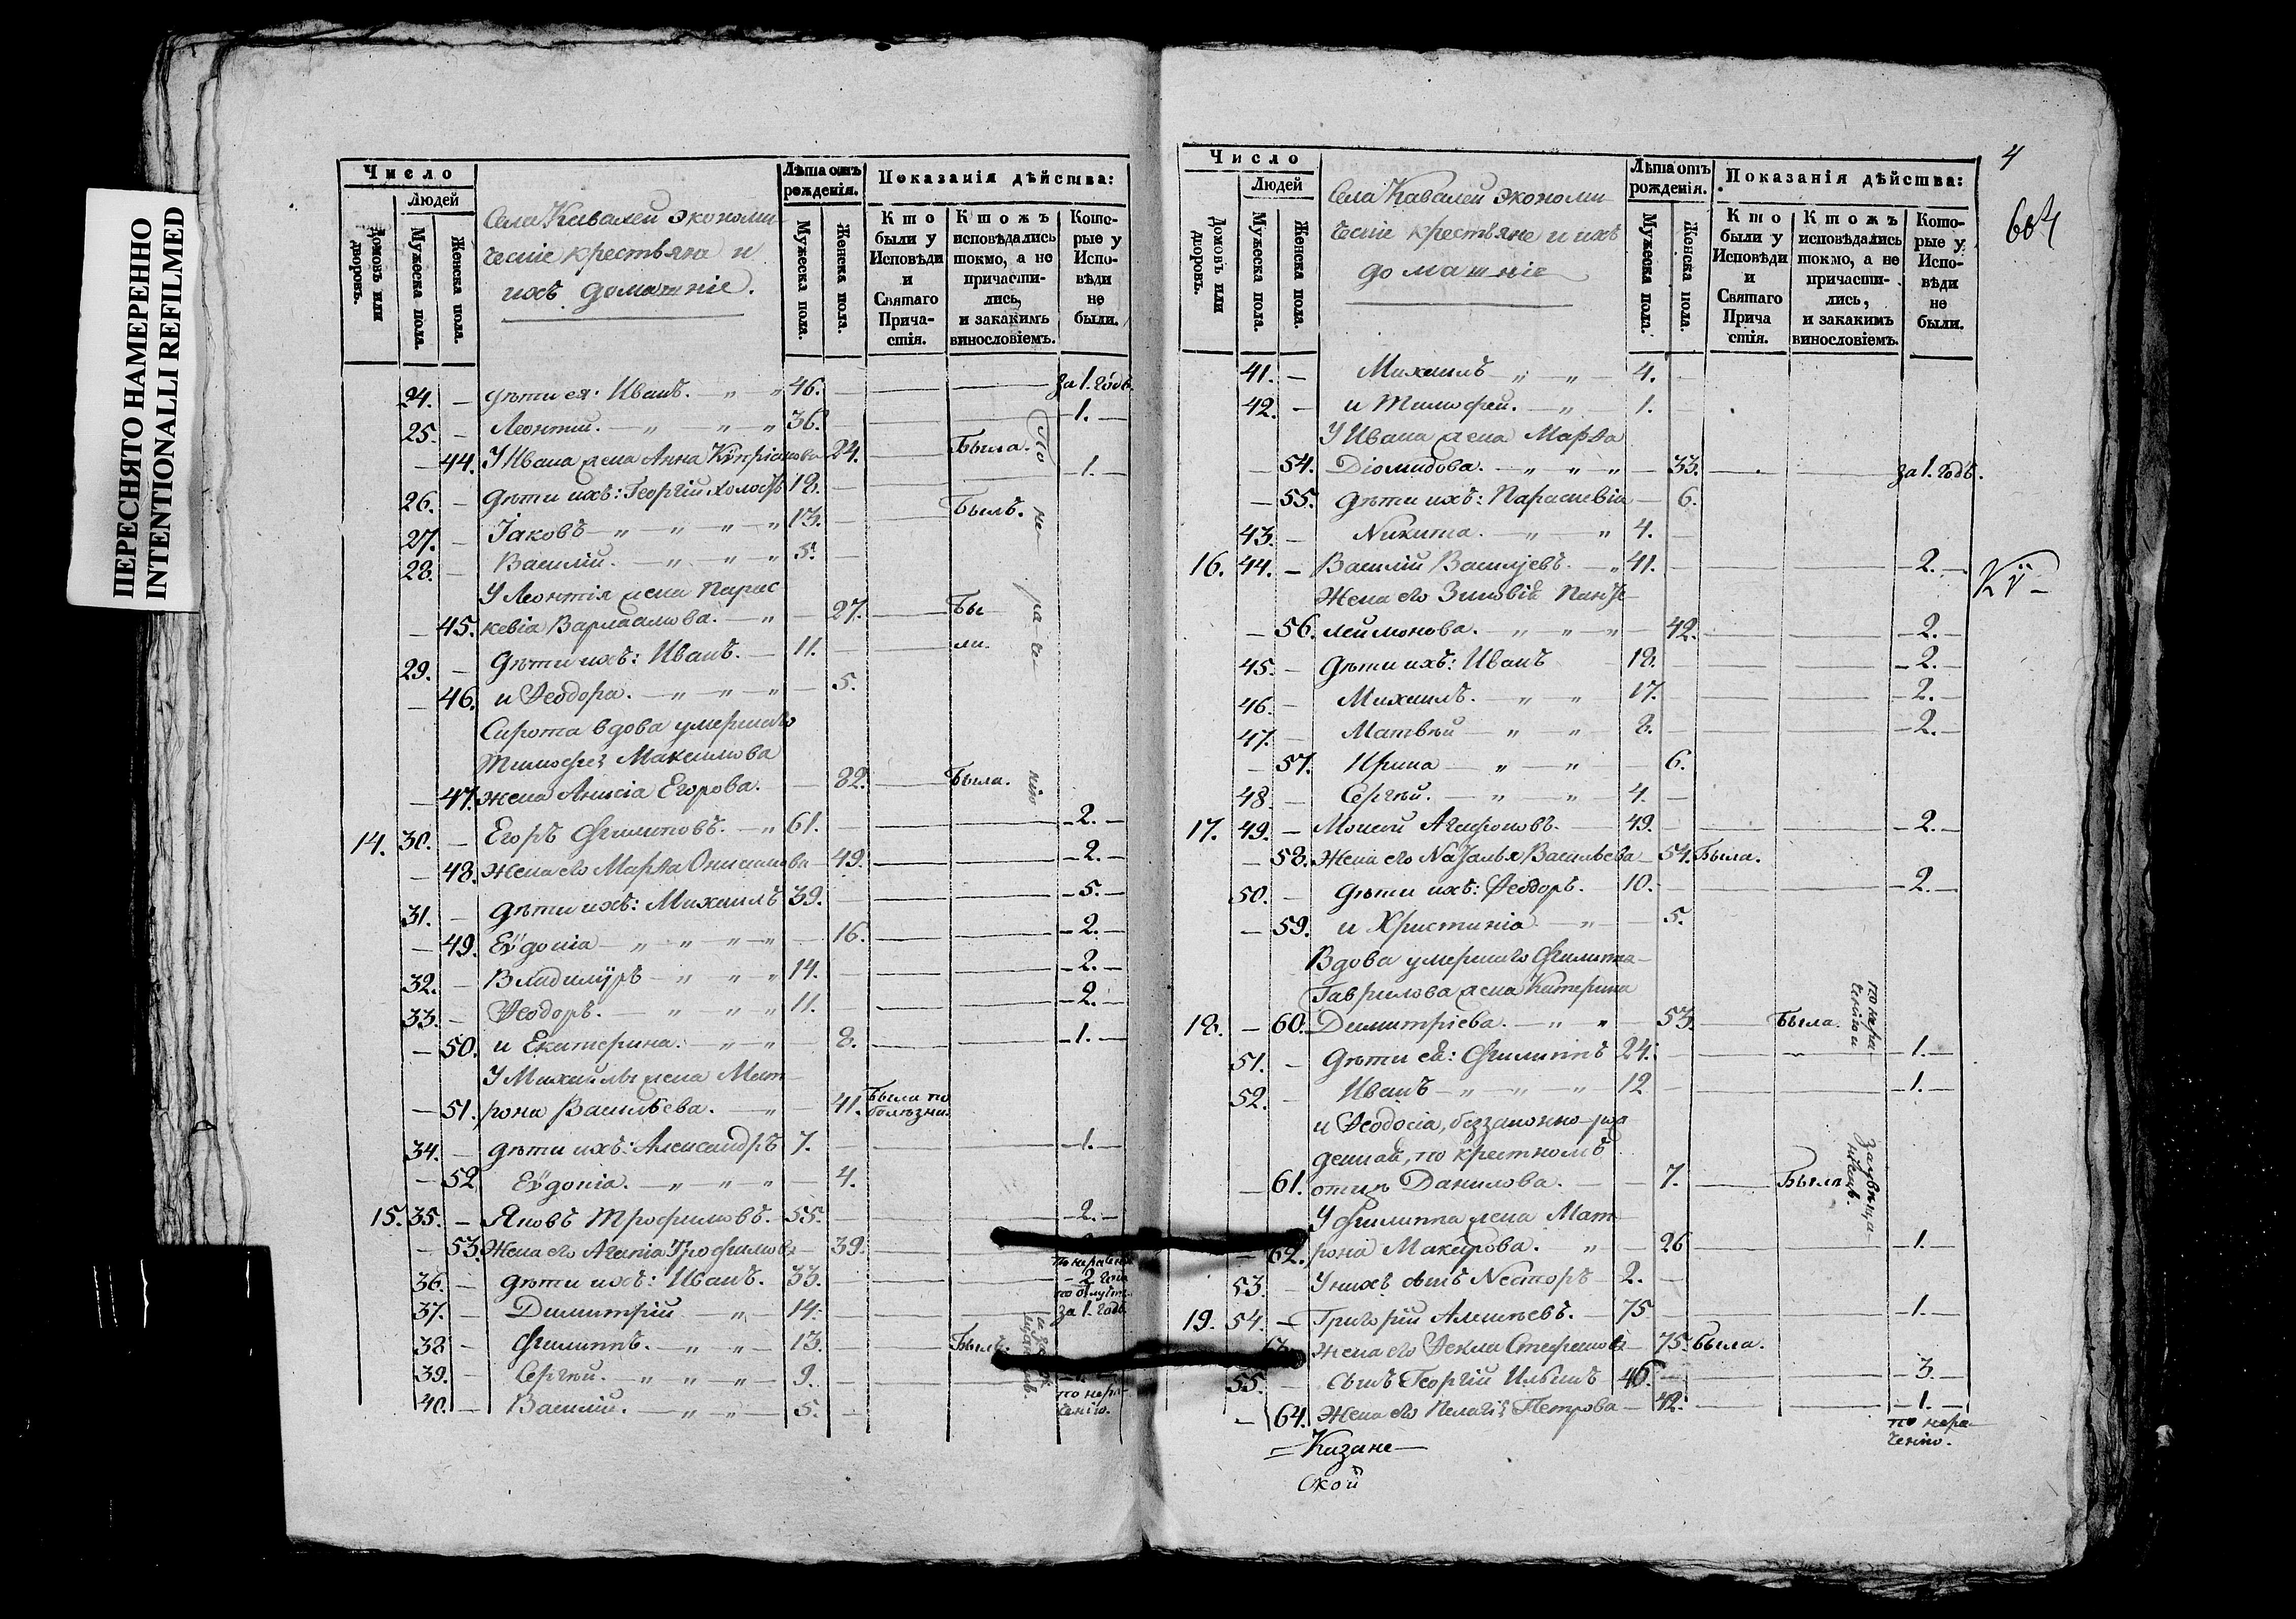 ПЕРЕСНЯТО НАМЕРЕННО
INTENTIONALLI REFILMED
Число
Людей
Домовъ или дворовъ.
Мужеска пола.
Женска пола.
Села Кавалей экономи-
ческіе крестьяне и
ихъ домашніе.
Лѣта отъ рожденія.
Мужеска пола.
Женска пола.
Показанія дѣйства:
Кто были у Исповѣди и Святаго Прича-стія.
Ктожъ исповѣдались токмо, а не причасти-лись, и закакимъ винословіемъ.
Кото-рые у Испо-вѣди не были.
24. — дѣти ея: Иванъ. — „ „ 46. — за 1. годъ.
25. — Леонтій. — „ „ „ 36. — 1. —
— 44. У Ивана жена Анна Кипріанова 24. — Была.
26. — дѣти ихъ: Георгій холостъ 18. — 1. —
27. — Іаковъ — „ „ „ „ 13. — Былъ.
28. — Василій. — „ „ „ 5. —
У Леонтія жена Парас
— 45. кевіа Варлаамова. — „ — 27. — Бы
29. — Дѣти ихъ: Иванъ. — 11. — ли.
— 46. и Ѳеодора. — „ „ „ — 5.
По не ра че нію
Сирота вдова умершаго
Тимофея Максимова
— 47. жена Анисіа Егорова. — 82. — Была.
14. 30. — Егоръ Филиповъ. — „ 61. — 2. —
— 48. Жена его Марѳа Онисимова — 49. — 2. —
31. — Дѣти ихъ: Михаилъ 39. — 5. —
— 49. Еѵдокіа — „ „ „ „ — 16. — 2. —
32. — Владимиръ — „ „ „ 14. — 2. —
33. — Ѳеодоръ. — „ „ „ 11. — 2. —
— 50. и Екатерина. — „ „ — 8. — 1. —
У Михаила жена Мат
— 51. рона Васильева. — „ — 41. Была по болѣзни.
34. — дѣти ихъ: Александръ 7. — 1. —
— 52. Еѵдокіа. — „ „ „ — 4.
15. 35. — Яковъ Трофимовъ. — 55. — 2. —
— 53. Жена его Агапіа Трофимова — 39. —
36. — дѣти ихъ: Иванъ. 33. — 2
37. — Димитрій — „ — 14. — за 1. годъ.
38 — Филиппъ. — „ „ — 13. — Былъ.
39. — Сергѣй. — „ „ „ — 9. —
40. — Василій. — „ „ — 5. — по нера-ченію.
4
604
Число
Людей
Домовъ или дворовъ.
Мужеска пола.
Женска пола.
Села Кавалей экономи-
ческіе крестьяне и ихъ
домашніе
Лѣта отъ рожденія.
Мужеска пола.
Женска пола.
Показанія дѣйства:
Кто были у Исповѣди и Святаго Прича стія.
Ктожъ исповѣдались токмо, а не причасти-лись, и закакимъ винословіемъ.
Кото-рые у Испо-вѣди не были.
41. — Михаилъ — „ „ — 4. —
42. — и Тимофей. — „ — 1. —
У Ивана жена Марѳа
— 54. Діомидова. — „ „ „ — 33. — за 1. годъ.
— 55. дѣти ихъ: Параскевіа — 6.
43. — Никита. — „ — „ 4. —
16. 44. — Василій Васильевъ. — „ 41. — 2. —
Жена его Зиновіа Панте
— 56. леймонова. — „ — „ — „ — 42. — 2. —
45. — дѣти ихъ: Иванъ 18. — 2. —
46. — Михаилъ. — „ „ 17. — 2. —
47. — Матвѣй — „ „ 8. — 2. —
— 57. Ирина — „ — „ — 6.
48. — Сергѣй. — „ — „ — 4. —
17. 49. — Моисей Агафоновъ. — 49. — 2. —
— 58. Жена его Наталья Васильева — 54. Была.
50. — дѣти ихъ: Ѳеодоръ. 10. — 2. —
— 59. и Христиніа — „ — 5.
Вдова умершаго Филиппа
Гаврилова жена Катерина
18. — 60. Димитріева. — „ „ — 53. — Была. по нера-ченію и
51. — Дѣти ея: Филиппъ 24. — 1. —
52. — Иванъ — „ „ „ 12 — 1. —
и Ѳеодосіа, беззаконно рож
денная, по крестномъ
— 61. отцѣ Данилова. — 7. — Была
У Филиппа жена Мат
— 62. рона Макарова. „ — 26 — 1. —
53. — У нихъ сынъ Несторъ 2. —
19. 54. — Григорій Алексѣевъ. — 75 — 1. —
63. Жена его Ѳекла Стефанова 75. Была.
55. — сынъ Георгій Ильинъ 46. — 3. —
— 64. Жена его Пелагія Петрова — 42. — 1. —
по нера-ченію.
= Казане-
ской